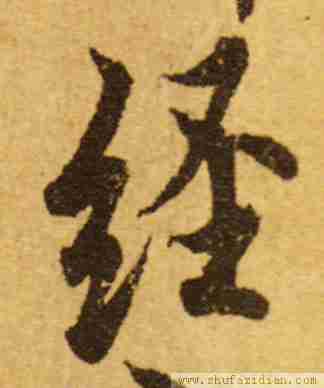 经
www.shufazidian.com